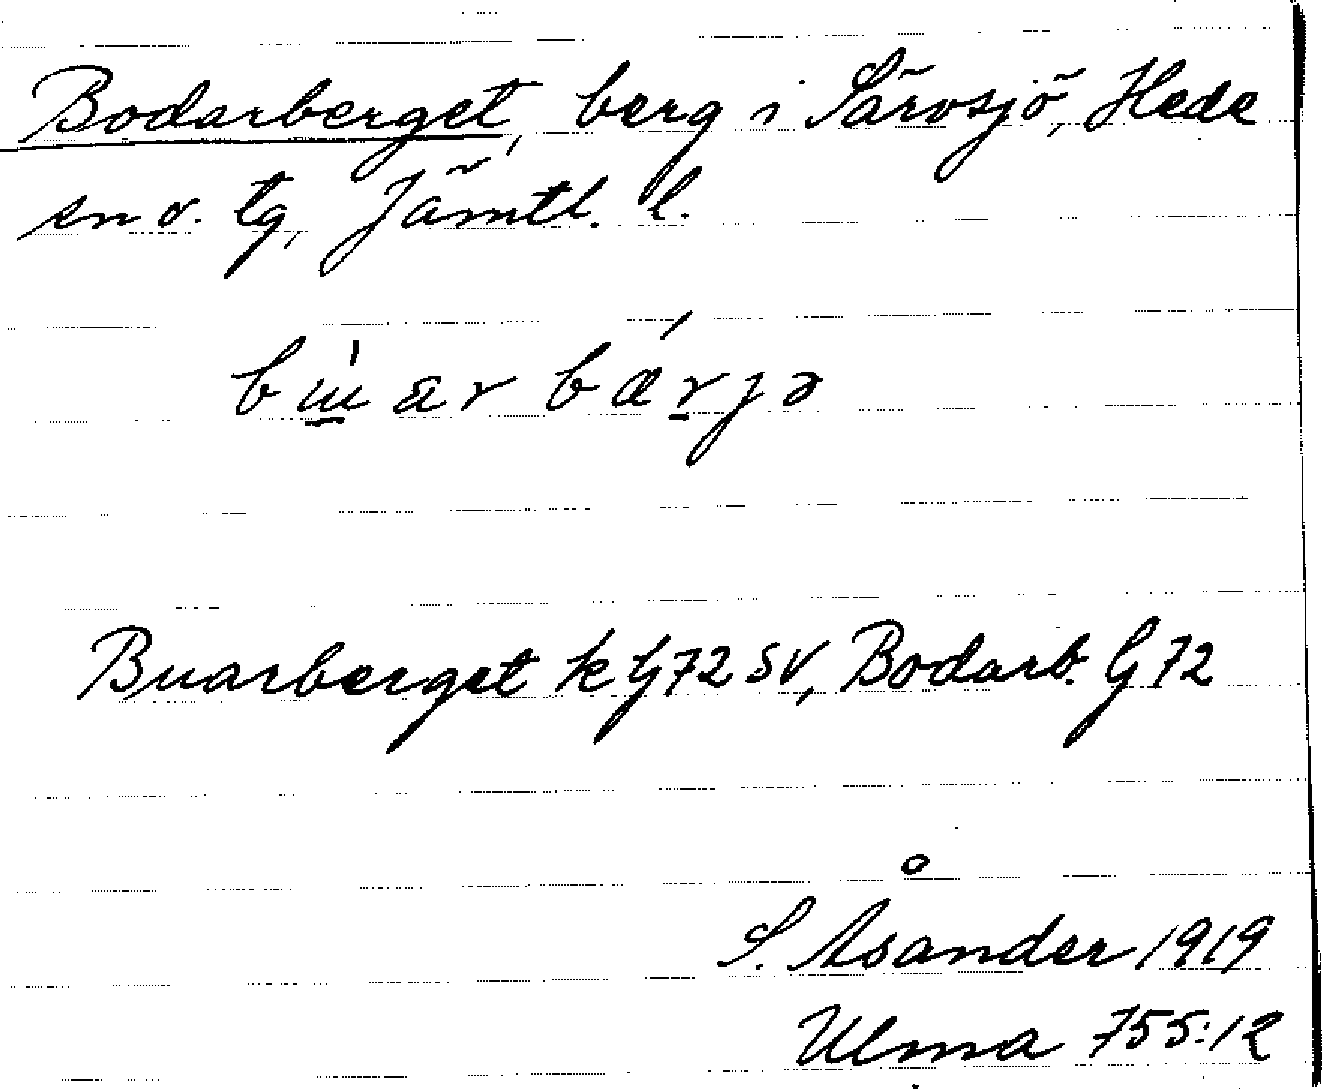 Bodarberget, berg i Särvsjö, Hede
sn o. tg, Jämtl. l.
Buarberget k G72 SV, Bodarb. G 72
S. Åsander 1919
Ulma 755:12